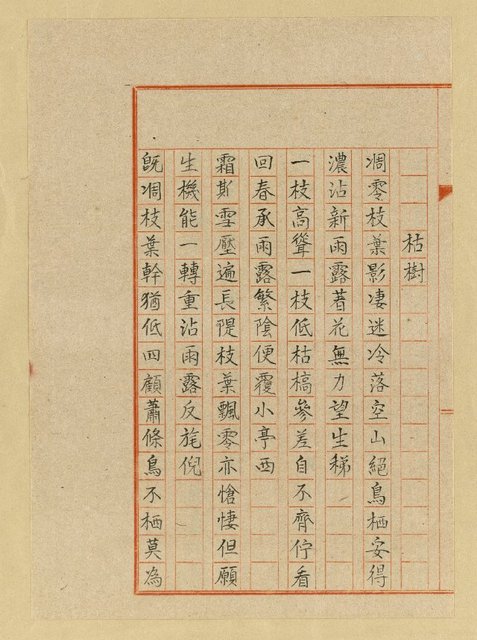 枯樹
凋零枝葉影淒迷冷落空山絕鳥栖安得
濃沾新雨露著花無力望生稊
一枝高聳一枝低枯槁參差自不齊佇看
回春承雨露繁陰便覆小亭西
霜斯雪壓遍長隄枝葉飄零亦愴悽但願
生機能一轉重沾雨露反旄倪
既凋枝葉幹猶低四顧蕭條鳥不栖莫為